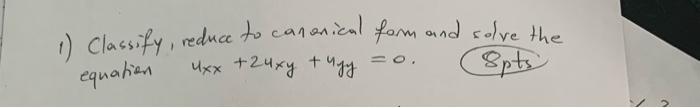 1) Classify, reduce to canonical form and solve the
equation uxx + 2uxy + uyy = 0. 8pts